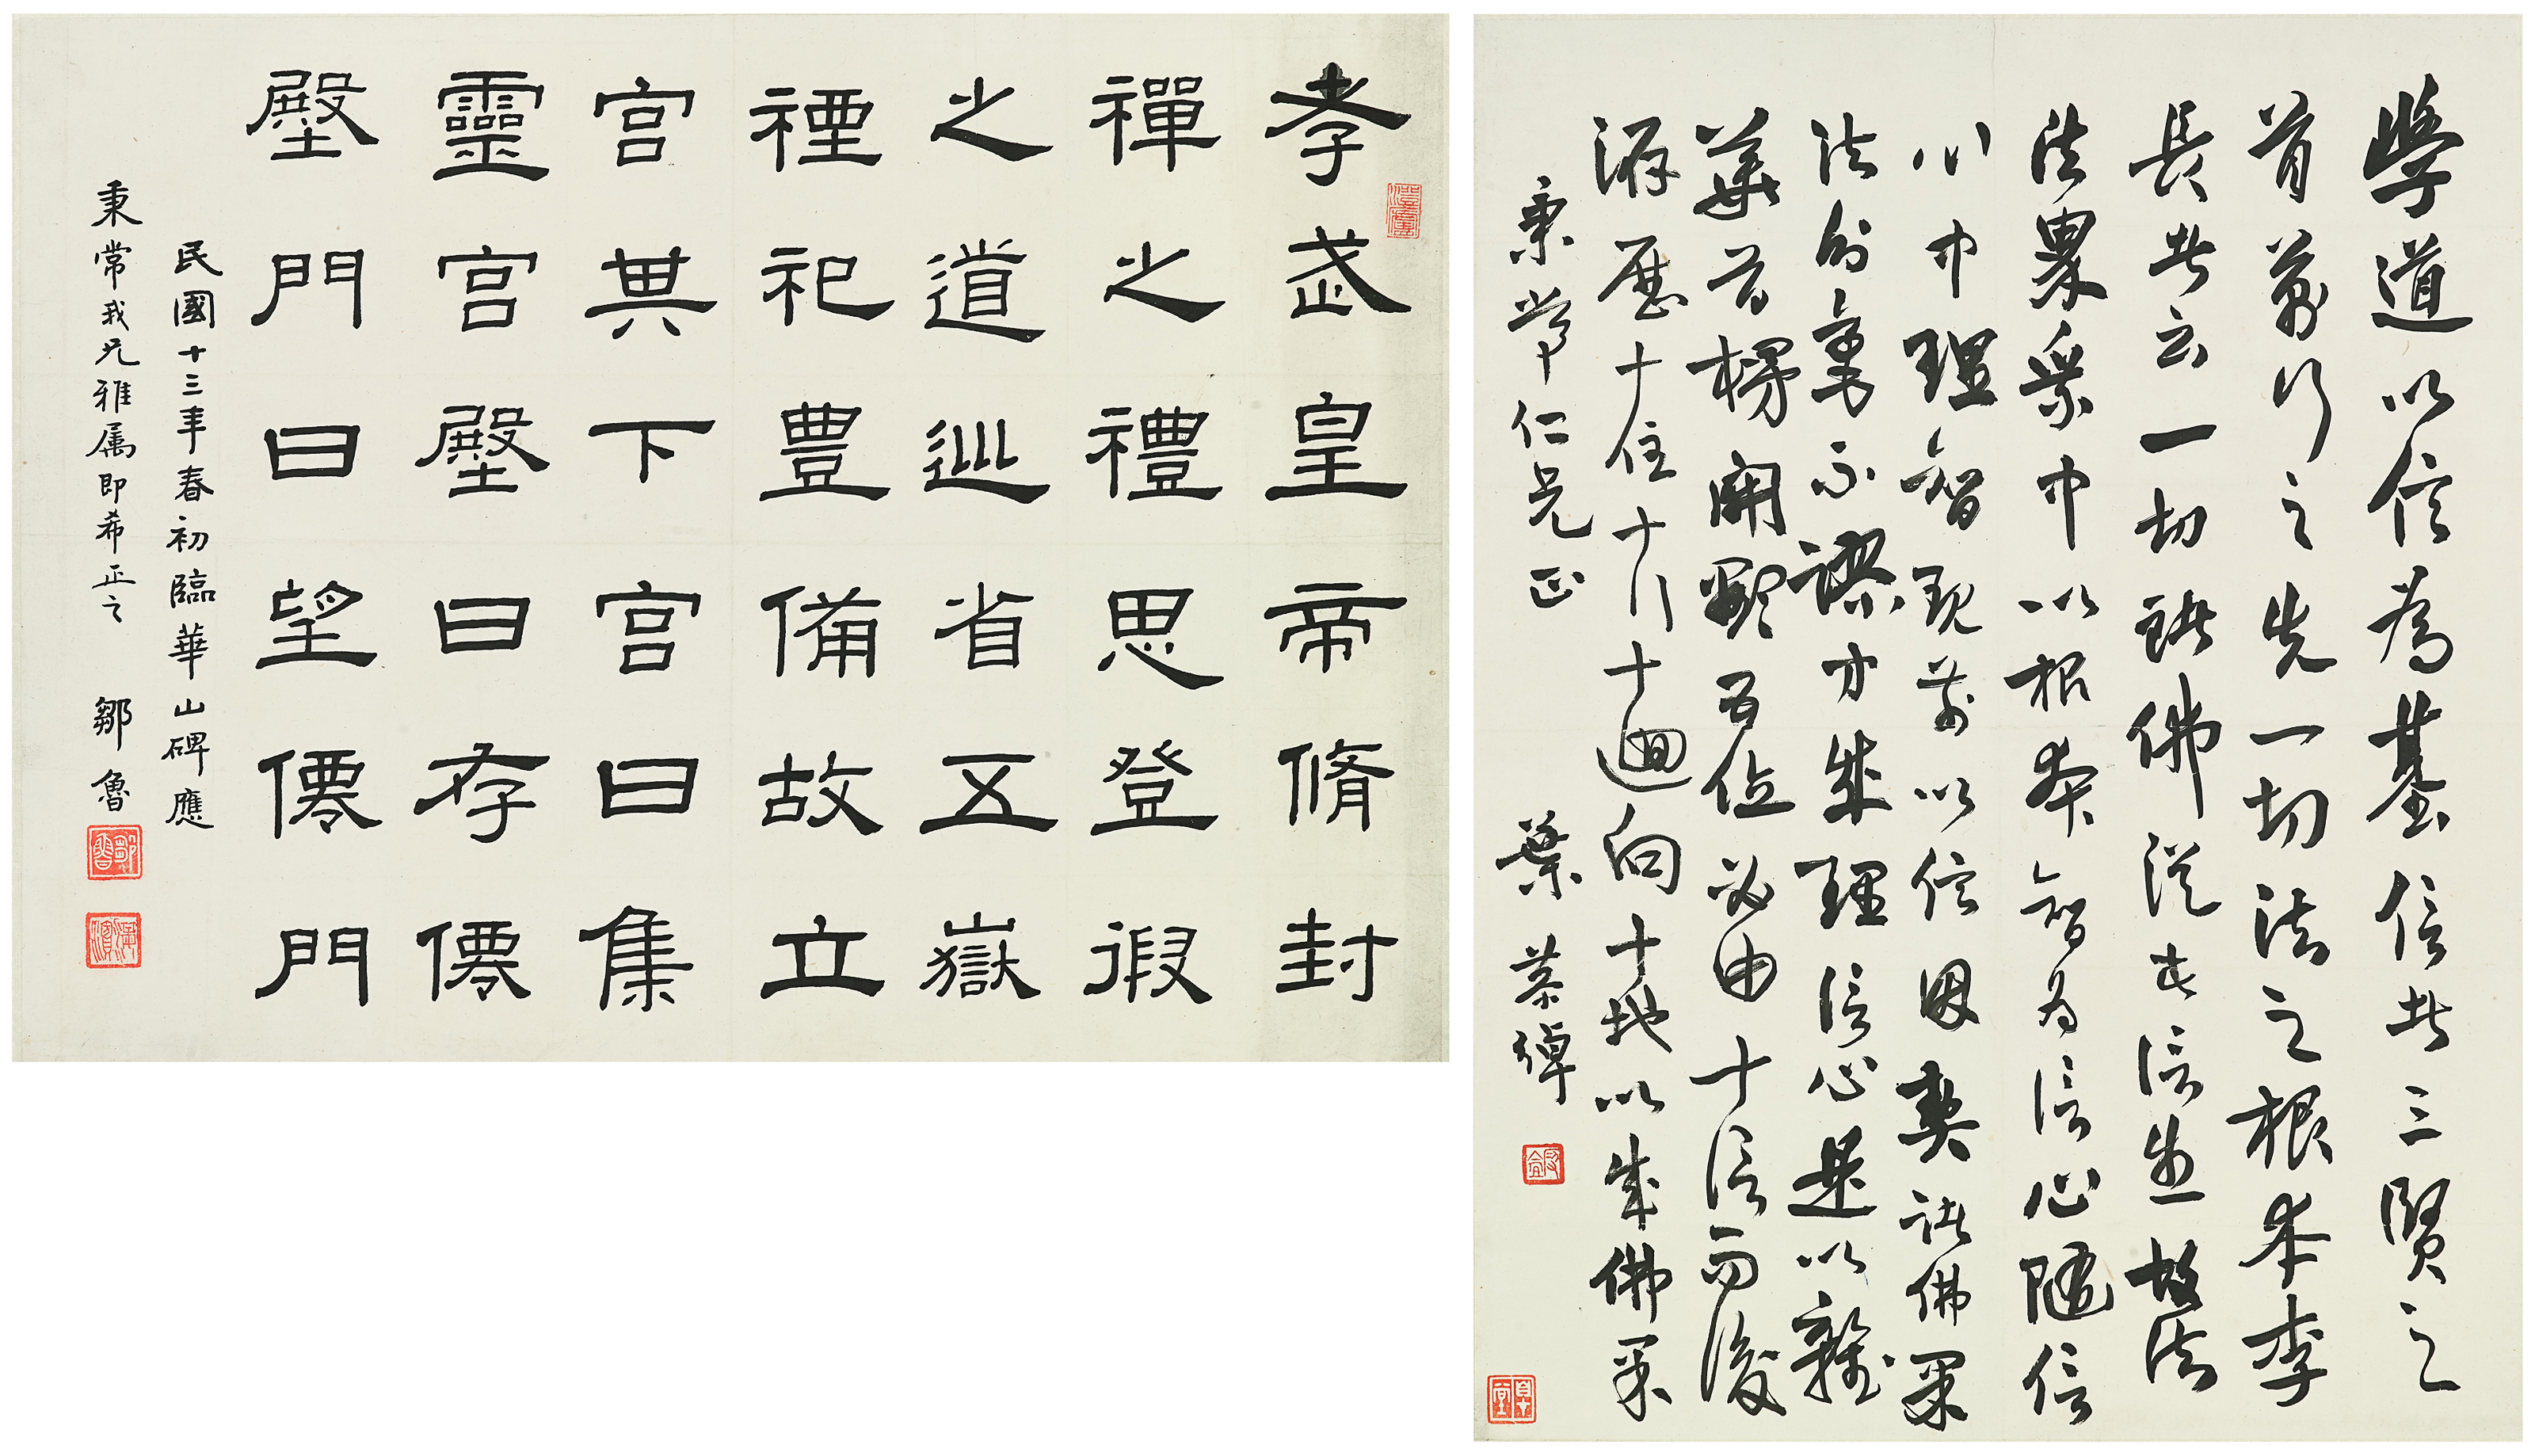 學道以信為基信者三賢之
首萬行之先一切法之根本李
長者云一切諸佛從此信生故法
法界眾中以根本智為信心隨信
心中理智現前以信因契諸佛果
法分毫不謬方成理信心是以雜
華首標開顯五位必由十信而後
游歷十住十行十迴向十地以成佛果
秉常仁兄正 葉恭綽
孝武皇帝脩封
禪之禮思登徦
之道巡省五嶽
禋祀豐備故立
宮其下宮曰集
靈宮壂曰存僊
壂門曰望僊門
民國十三年春初臨華山碑應
秉常我兄雅属即希正之 鄒魯